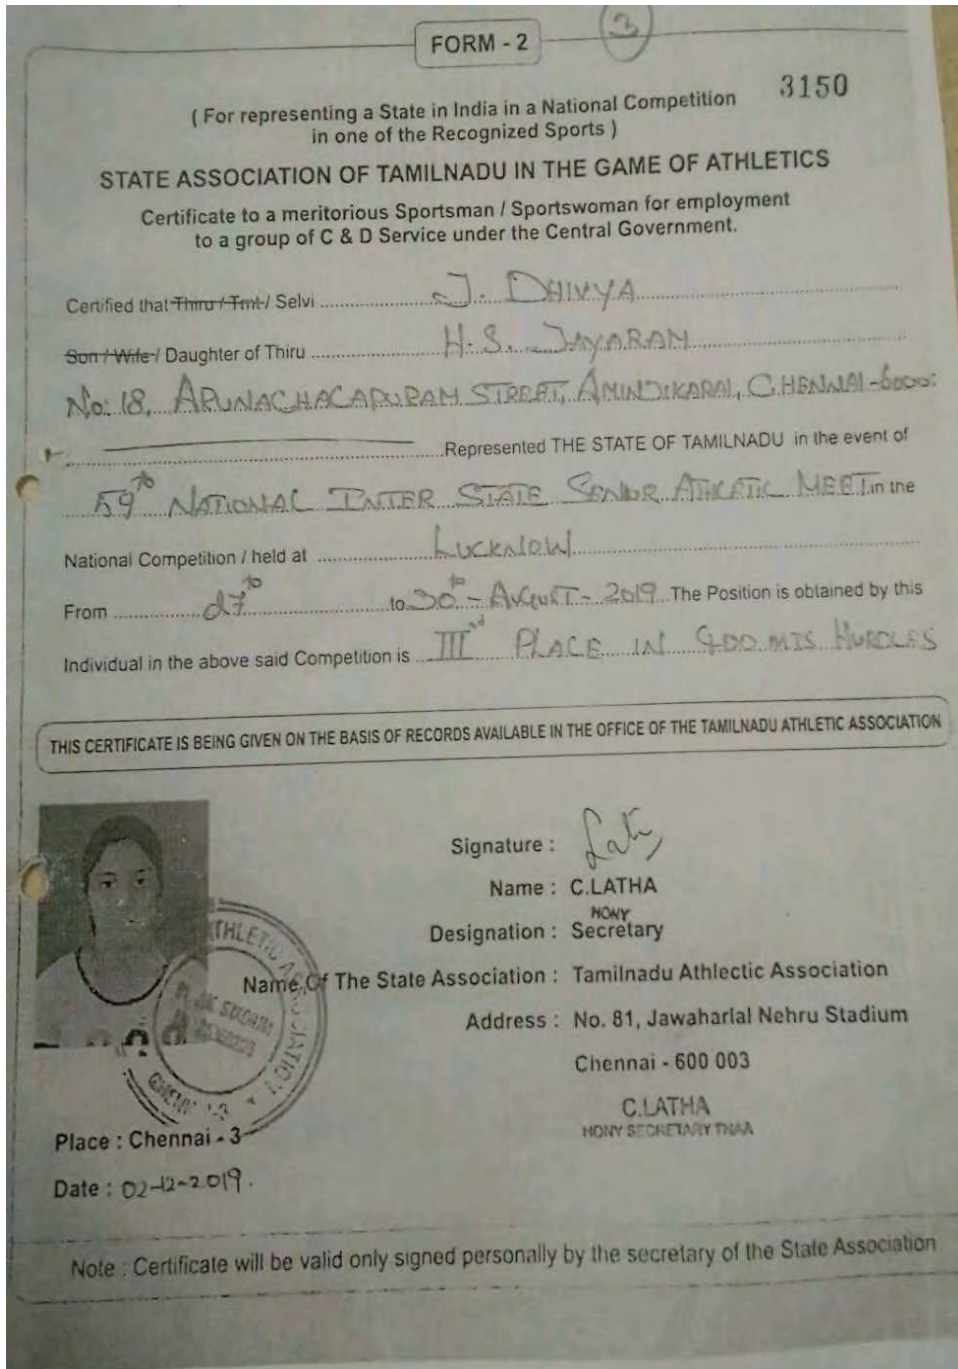 FORM - 2
3
3150
( For representing a State in India in a National Competition
in one of the Recognized Sports )
STATE ASSOCIATION OF TAMILNADU IN THE GAME OF ATHLETICS
Certificate to a meritorious Sportsman / Sportswoman for employment
to a group of C & D Service under the Central Government.
Certified that Thiru / Tmt / Selvi J. DHIVYA
Son / Wife / Daughter of Thiru H. S. JAYARAM
No: 18, ARUNACHACAPURAM STREET, AMINJIKARAI, CHENNAI-6000
Represented THE STATE OF TAMILNADU in the event of
59th NATIONAL INTER STATE SENIOR ATHLETIC MEET in the
National Competition / held at LUCKNOW
From 27th to 30th - AUGUST - 2019 The Position is obtained by this
Individual in the above said Competition is IIIrd PLACE IN 400 MTS HURDLES
THIS CERTIFICATE IS BEING GIVEN ON THE BASIS OF RECORDS AVAILABLE IN THE OFFICE OF THE TAMILNADU ATHLETIC ASSOCIATION
Signature :
Name : C.LATHA
HONY
Designation : Secretary
Name Of The State Association : Tamilnadu Athlectic Association
Address : No. 81, Jawaharlal Nehru Stadium
Chennai - 600 003
C.LATHA
HONY SECRETARY TNAA
Place : Chennai - 3
Date : 02-12-2019.
Note : Certificate will be valid only signed personally by the secretary of the State Association